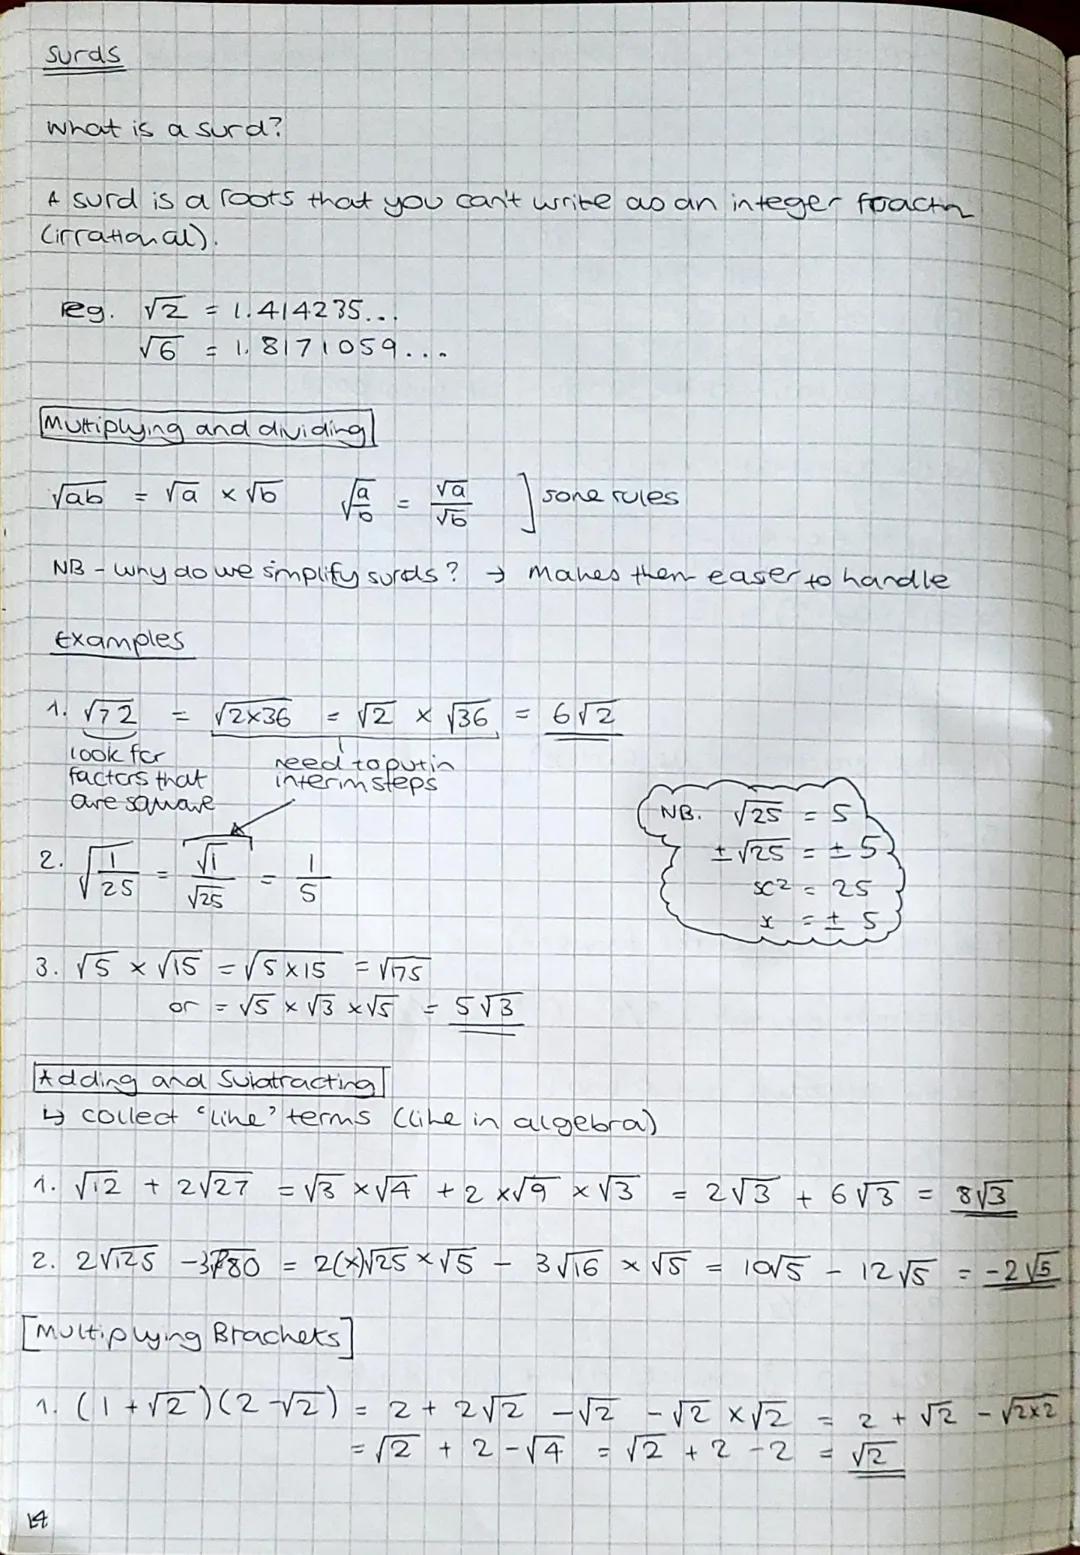 Surds
What is a surd?
A surd is a roots that you can't write as an integer
(irrational).
eg. √2 = 1.414235...
√6 = 1.8171059...
Multiplying and dividing
√ab = √a × √b √(a/b) = √a/√b ] some rules
NB - why do we simplify surds? → makes them easer to handle
Examples
1. √72 = √2×36 = √2 × √36 = 6√2
look for factors that are square
need to put in interim steps
NB. √25 = 5
±√25 = ±5
x² = 25
x = ±5
2. √(1/25) = √1/√25 = 1/5
3. √5 × √15 = √5×15 = √175
or = √5 × √3 × √5 = 5√3
Adding and Subtracting
↳ collect 'like' terms (like in algebra)
1. √12 + 2√27 = √3 × √4 + 2 × √9 × √3 = 2√3 + 6√3 = 8√3
2. 2√125 - 3√80 = 2(×)√25 × √5 - 3√16 × √5 = 10√5 - 12√5 = -2√5
[Multiplying Brackets]
1. (1+√2)(2-√2) = 2 + 2√2 - √2 - √2 × √2 = 2 + √2 - √2×2
= √2 + 2 - √4 = √2 + 2 - 2 = √2